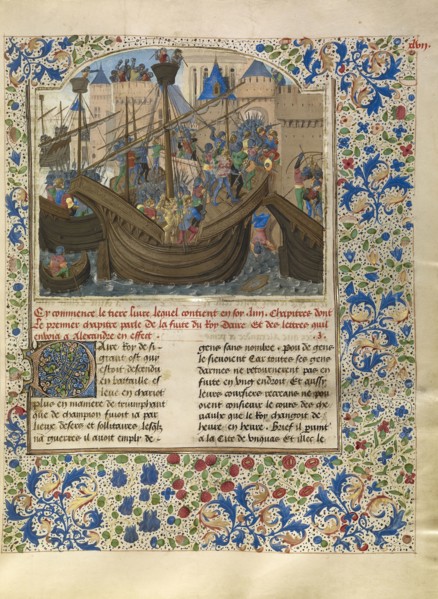 xlvij.
Cy commence le tiers livre lequel contient en soy .Chapitres dont
Le premier chapitre parle de la fuite du Roy Daire Et des lettres quil
envoia a Alexandre en effect .
Daire Roy de si
grant ost quy
estoit descendu
en bataille et
leve en chariot
plus en maniere de triumphant
que de champion fuioit ia par
lieux desers et sollitaires lesqlz
na guerres il avoit emply de
gens sans nombre . Pou de gens
le sieuvoient Car toutes ses gens
darmes ne retournerent pas en
fuite en ung endroit Et aussy
leurs coursiers recreans ne pou
oient consieuir le cours des che
vaulx que le Roy changoit de
heure en heure . Brief il vint
a la Cite de Et illec le